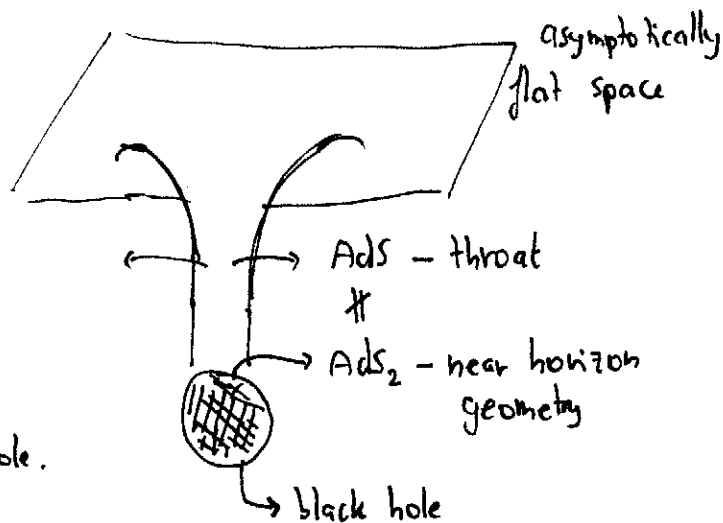 asymptotically
flat space
AdS - throat
#
AdS₂ - near horizon
geometry
ole.
black hole